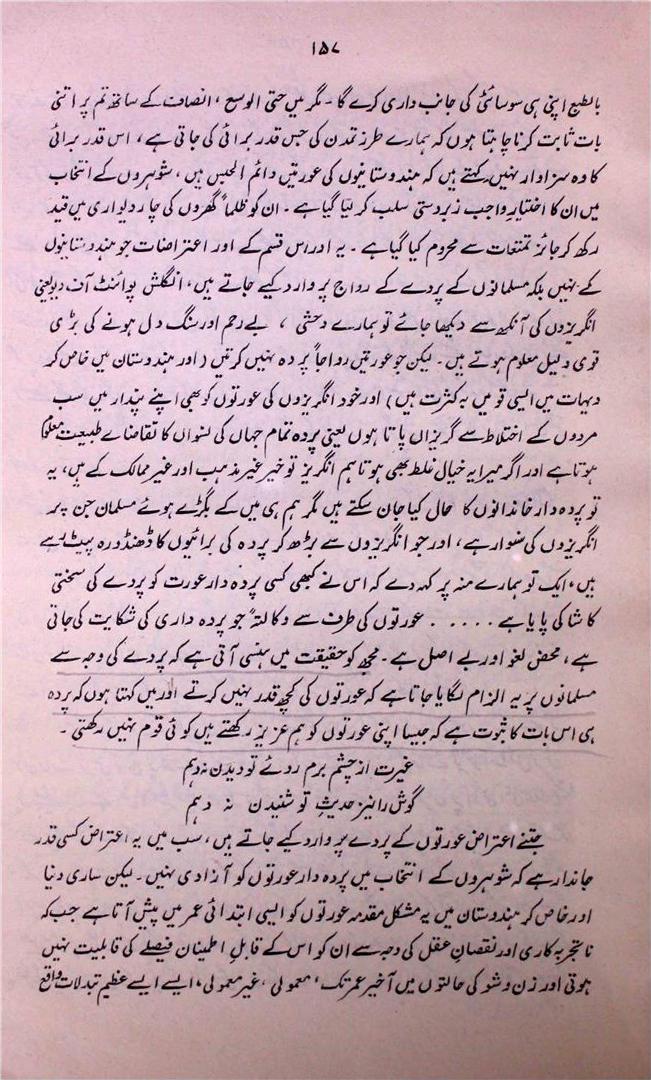 ۱۵۷
بالطبع اپنی ہی سوسائٹی کی جانب داری کرے گا۔ مگر میں حتی الوسع، انصاف کے ساتھ تم پر اتنی
بات ثابت کرنا چاہتا ہوں کہ ہمارے طرز تمدن کی جس قدر برائی کی جاتی ہے، اس قدر برائی
کا وہ سزاوار نہیں۔ کہتے ہیں کہ ہندوستانیوں کی عورتیں دائم الحبس ہیں، شوہروں کے انتخاب
میں ان کا اختیارِ واجب زبردستی سلب کر لیا گیا ہے۔ ان کو ظلماً گھروں کی چار دیواری میں قید
رکھ کر جائز تمتعات سے محروم کیا گیا ہے۔ یہ اور اس قسم کے اور اعتراضات جو ہندوستانیوں
کے نہیں بلکہ مسلمانوں کے پردے کے رواج پر وارد کیے جاتے ہیں، انگلش پوائنٹ آف ویو یعنی
انگریزوں کی آنکھ سے دیکھا جائے تو ہمارے وحشی، بے رحم اور سنگ دل ہونے کی بڑی
قوی دلیل معلوم ہوتے ہیں۔ لیکن جو عورتیں رواجاً پردہ نہیں کرتیں (اور ہندوستان میں خاص کر
دیہات میں ایسی قومیں بہ کثرت ہیں) اور خود انگریزوں کی عورتوں کو بھی اپنے پندار میں سب
مردوں کے اختلاط سے گریزاں پاتا ہوں یعنی پردہ تمام جہاں کی نسواں کا تقاضاے طبیعت معلوم
ہوتا ہے اور اگر میرا یہ خیال غلط بھی ہو تا ہم انگریز تو خیر غیر مذہب اور غیر ممالک کے ہیں، یہ
تو پردہ دار خاندانوں کا حال کیا جان سکتے ہیں مگر ہم ہی میں کے بگڑے ہوئے مسلمان جن پر
انگریزوں کی سنوار ہے، اور جو انگریزوں سے بڑھ کر پردہ کی برائیوں کا ڈھنڈورہ پیٹ رہے
ہیں، ایک تو ہمارے منہ پر کہہ دے کہ اس نے کبھی کسی پردہ دار عورت کو پردے کی سختی
کا شاکی پایا ہے ..... عورتوں کی طرف سے وکالتہً جو پردہ داری کی شکایت کی جاتی
ہے، محض لغو اور بے اصل ہے۔ مجھ کو حقیقت میں ہنسی آتی ہے کہ پردے کی وجہ سے
مسلمانوں پر یہ الزام لگایا جاتا ہے کہ عورتوں کی کچھ قدر نہیں کرتے اور میں کہتا ہوں کہ پردہ
ہی اس بات کا ثبوت ہے کہ جیسا اپنی عورتوں کو ہم عزیز رکھتے ہیں کوئی قوم نہیں رکھتی۔
غیرت از چشم برم روئے تو دیدن نہ دہم
گوش را نیز حدیثِ تو شنیدن نہ دہم
جتنے اعتراض عورتوں کے پردے پر وارد کیے جاتے ہیں، سب میں یہ اعتراض کسی قدر
جاندار ہے کہ شوہروں کے انتخاب میں پردہ دار عورتوں کو آزادی نہیں۔ لیکن ساری دنیا
اور خاص کر ہندوستان میں یہ مشکل مقدمہ عورتوں کو ایسی ابتدائی عمر میں پیش آتا ہے جب کہ
ناتجربہ کاری اور نقصانِ عقل کی وجہ سے ان کو اس کے قابلِ اطمینان فیصلے کی قابلیت نہیں
ہوتی اور زن و شو کی حالتوں میں آخیر عمر تک، معمولی، غیر معمولی، ایسے ایسے عظیم تبدلات واقع